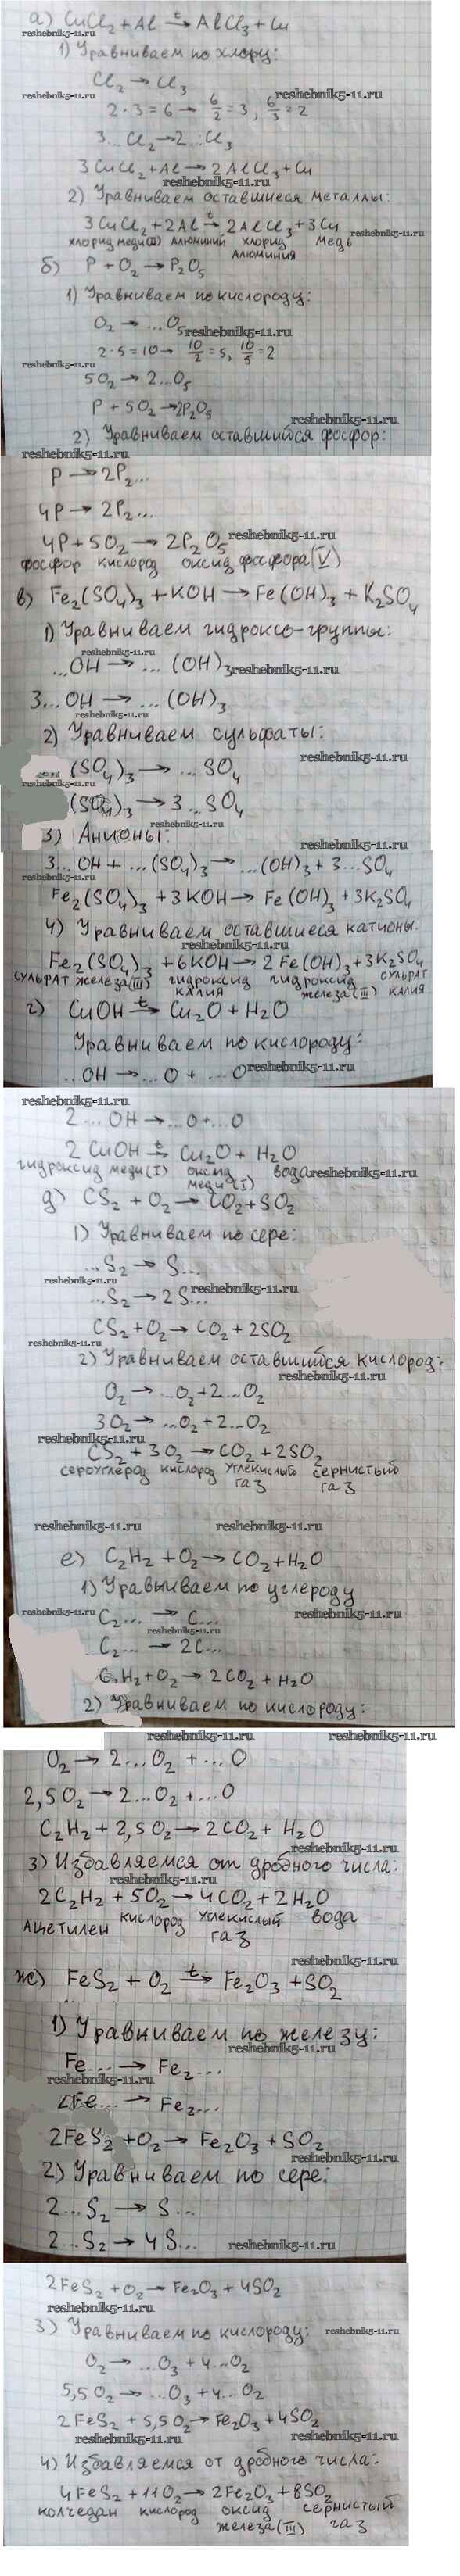 а) CuCl₂ + Al →t AlCl₃ + Cu
reshebnik5-11.ru
1) Уравниваем по хлору:
Cl₂ → Cl₃
reshebnik5-11.ru reshebnik5-11.ru
2·3=6 → 6/2=3, 6/3=2
3...Cl₂→2...Cl₃
3CuCl₂+Al→2AlCl₃+Cu
reshebnik5-11.ru
2) Уравниваем оставшиеся металлы:
3CuCl₂+2Al →t 2AlCl₃+3Cu
reshebnik5-11.ru
хлорид меди(II) алюминий хлорид алюминия медь
б) P + O₂ → P₂O₅
1) Уравниваем по кислороду:
O₂ → ...O₅
reshebnik5-11.ru
2·5=10 → 10/2=5, 10/5=2
reshebnik5-11.ru
5O₂ → 2...O₅
P + 5O₂ →2P₂O₅
reshebnik5-11.ru
2) Уравниваем оставшийся фосфор:
reshebnik5-11.ru
P → 2P₂...
4P → 2P₂...
4P + 5O₂ → 2P₂O₅
reshebnik5-11.ru
фосфор кислород оксид фосфора(V)
в) Fe₂(SO₄)₃ + KOH → Fe(OH)₃ + K₂SO₄
1) Уравниваем гидроксо-группы:
reshebnik5-11.ru
...OH → ...(OH)₃
reshebnik5-11.ru
3...OH → ...(OH)₃
reshebnik5-11.ru
2) Уравниваем сульфаты:
reshebnik5-11.ru
(SO₄)₃ → ...SO₄
reshebnik5-11.ru
(SO₄)₃ → 3...SO₄
reshebnik5-11.ru
3) Анионы:
reshebnik5-11.ru
3...OH + ...(SO₄)₃ → ...(OH)₃ + 3...SO₄
reshebnik5-11.ru
Fe₂(SO₄)₃ + 3KOH → Fe(OH)₃ + 3K₂SO₄
4) Уравниваем оставшиеся катионы.
reshebnik5-11.ru
Fe₂(SO₄)₃ + 6KOH → 2Fe(OH)₃ + 3K₂SO₄
сульфат железа(III) гидроксид калия гидроксид железа(III) сульфат калия
г) CuOH →t Cu₂O + H₂O
Уравниваем по кислороду:
...OH → ...O + ...O
reshebnik5-11.ru
reshebnik5-11.ru
2...OH → ...O + ...O
2CuOH →t Cu₂O + H₂O
гидроксид меди(I) оксид меди(I) вода
reshebnik5-11.ru
д) CS₂ + O₂ → CO₂ + SO₂
1) Уравниваем по сере:
...S₂ → S...
reshebnik5-11.ru
...S₂ → 2S...
reshebnik5-11.ru
CS₂ + O₂ → CO₂ + 2SO₂
reshebnik5-11.ru
2) Уравниваем оставшийся кислород:
reshebnik5-11.ru
O₂ → ...O₂ + 2...O₂
3O₂ → ...O₂ + 2...O₂
reshebnik5-11.ru
CS₂ + 3O₂ → CO₂ + 2SO₂
сероуглерод кислород углекислый газ сернистый газ
reshebnik5-11.ru reshebnik5-11.ru
е) C₂H₂ + O₂ → CO₂ + H₂O
1) Уравниваем по углероду
reshebnik5-11.ru
C₂... → C...
reshebnik5-11.ru
reshebnik5-11.ru
C₂... → 2C...
C₂H₂ + O₂ → 2CO₂ + H₂O
2) Уравниваем по кислороду:
reshebnik5-11.ru reshebnik5-11.ru
O₂ → 2...O₂ + ...O
2,5O₂ → 2...O₂ + ...O
C₂H₂ + 2,5O₂ → 2CO₂ + H₂O
reshebnik5-11.ru
3) Избавляемся от дробного числа:
reshebnik5-11.ru
2C₂H₂ + 5O₂ → 4CO₂ + 2H₂O
ацетилен кислород углекислый газ вода
reshebnik5-11.ru
ж) FeS₂ + O₂ →t Fe₂O₃ + SO₂
1) Уравниваем по железу:
reshebnik5-11.ru
Fe... → Fe₂...
reshebnik5-11.ru
2Fe... → Fe₂...
2FeS₂ + O₂ → Fe₂O₃ + SO₂
2) Уравниваем по сере:
2...S₂ → S...
2...S₂ → 4S...
reshebnik5-11.ru
2FeS₂ + O₂ → Fe₂O₃ + 4SO₂
reshebnik5-11.ru
3) Уравниваем по кислороду:
reshebnik5-11.ru
O₂ → ...O₃ + 4...O₂
5,5O₂ → ...O₃ + 4...O₂
2FeS₂ + 5,5O₂ → Fe₂O₃ + 4SO₂
reshebnik5-11.ru reshebnik5-11.ru
4) Избавляемся от дробного числа:
4FeS₂ + 11O₂ → 2Fe₂O₃ + 8SO₂
колчедан кислород оксид железа(III) сернистый газ